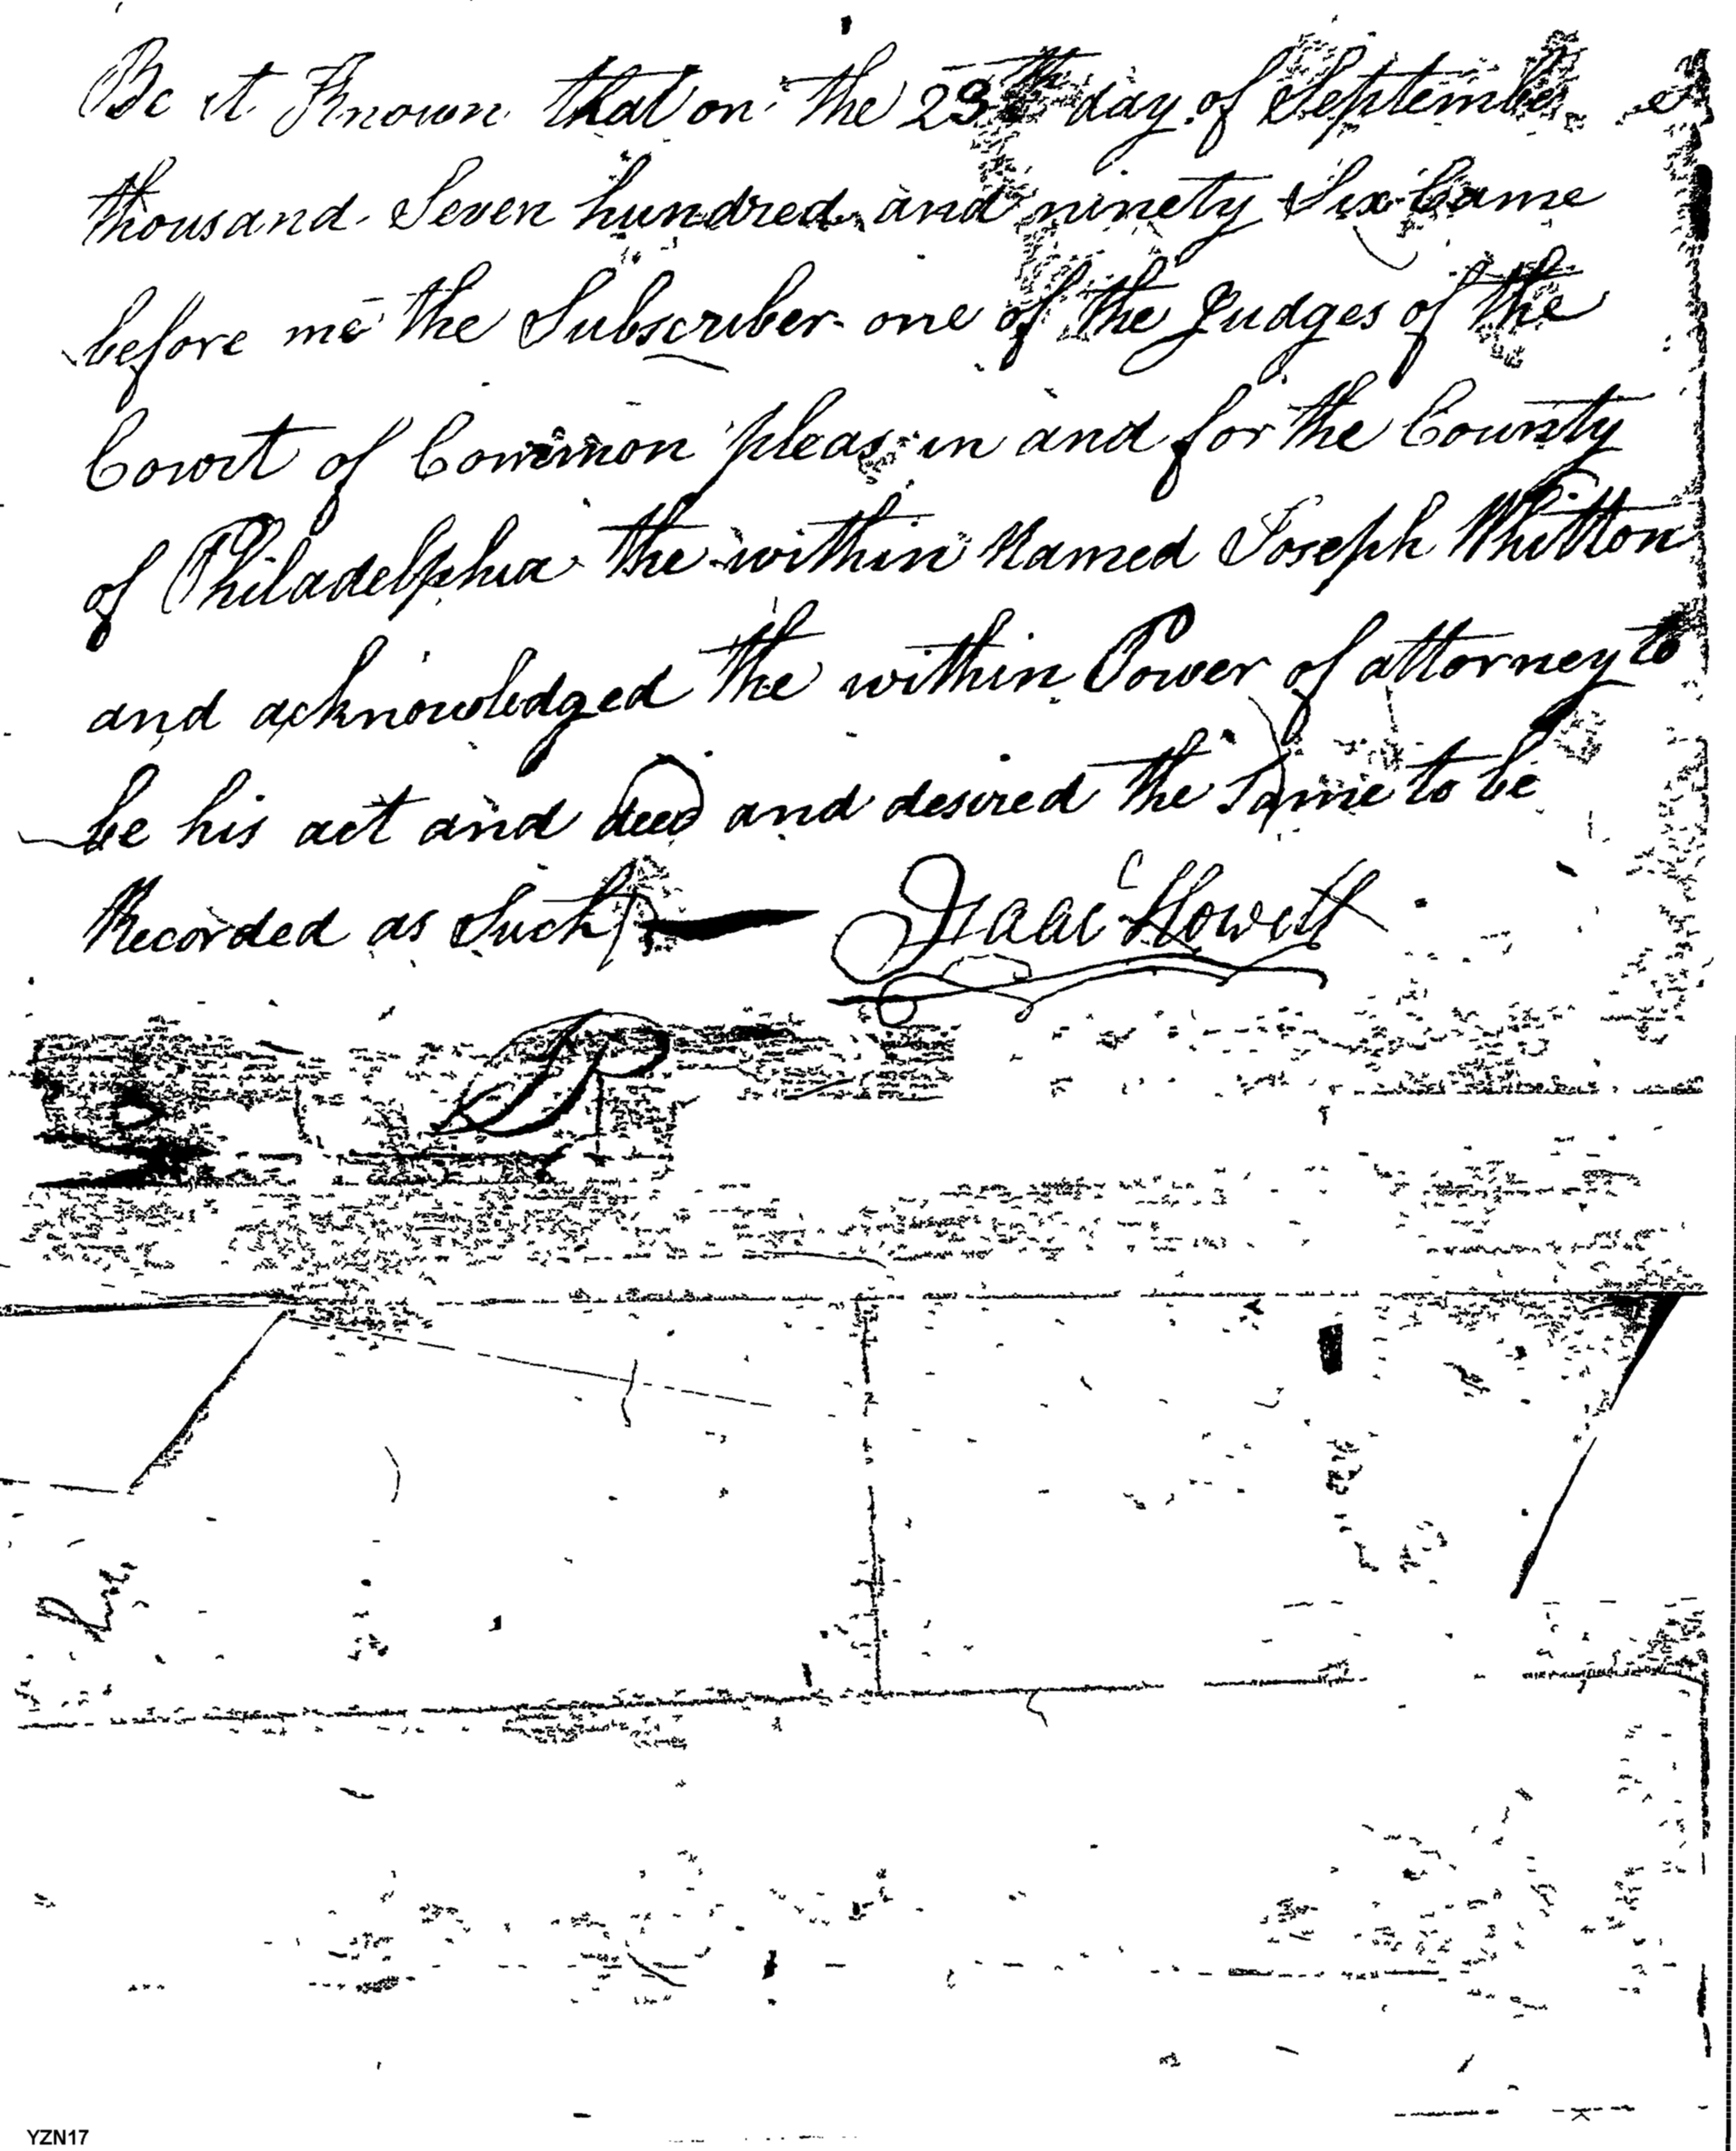 Be it Known that on the 23th day of September
thousand Seven hundred and ninety Six Came
before me the Subscriber one of the Judges of the
Court of Common pleas in and for the County
of Philadelphia the within Named Joseph Whitton
and acknowledged the within Power of attorney to
be his act and deed and desired the Same to be
Recorded as Such Isaac Howell
YZN17